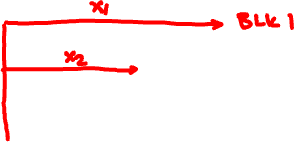 x1 BLK 1
x2